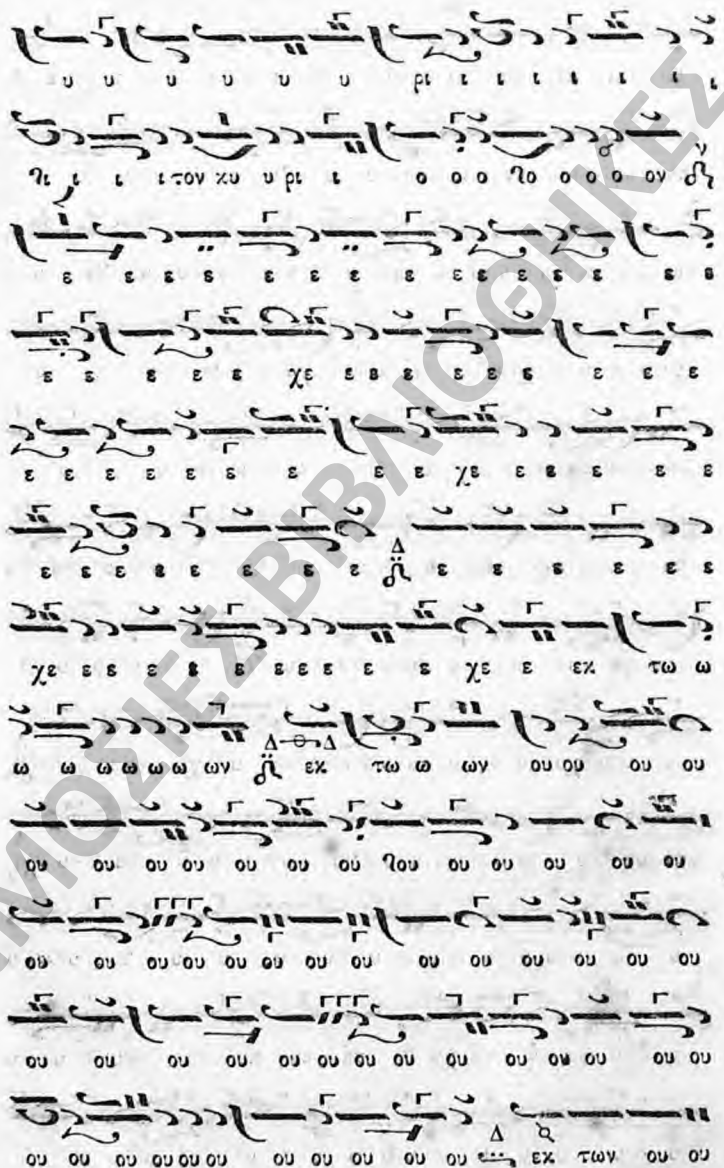 υ υ υ υ υ υ ρι ι ι ι ι ι ι ι
ϟι ι ι ι τον κυ υ ρι ι ο ο ο ϟο ο ο ο ον ν
ε ε ε ε ε ε ε ε ε ε ε ε ε ε ε
ε ε ε ε ε χε ε ε ε ε ε ε ε ε ε
ε ε ε ε ε ε ε ε ε χε ε ε ε ε ε
ε ε ε ε ε ε ε Δ ε ε ε ε ε ε
χε ε ε ε ε ε ε ε ε ε ε ε χε ε εκ τω ω
ω ω ω ω ω ω ων Δ Δ εκ τω ω ων ου ου ου ου
ου ου ου ου ου ου ου ϟου ου ου ου ου ου
ου ου ου ου ου ου ου ου ου ου ου ου ου ου
ου ου ου ου ου ου ου ου ου ου ου ου ου ου
ου ου ου ου ου ου ου ου ου ου ου Δ εκ των ου ου
ΔΗΜΟΣΙΕΣ ΒΙΒΛΙΟΘΗΚΕΣ